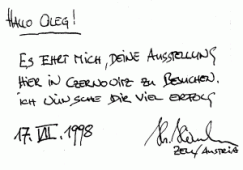 HALLO OLEG!
ES EHRT MICH, DEINE AUSSTELLUNG
HIER IN CZERNOWITZ ZU BESUCHEN.
ICH WÜNSCHE DIR VIEL ERFOLG
17. VII. 1998
ZELL/AUSTRIA